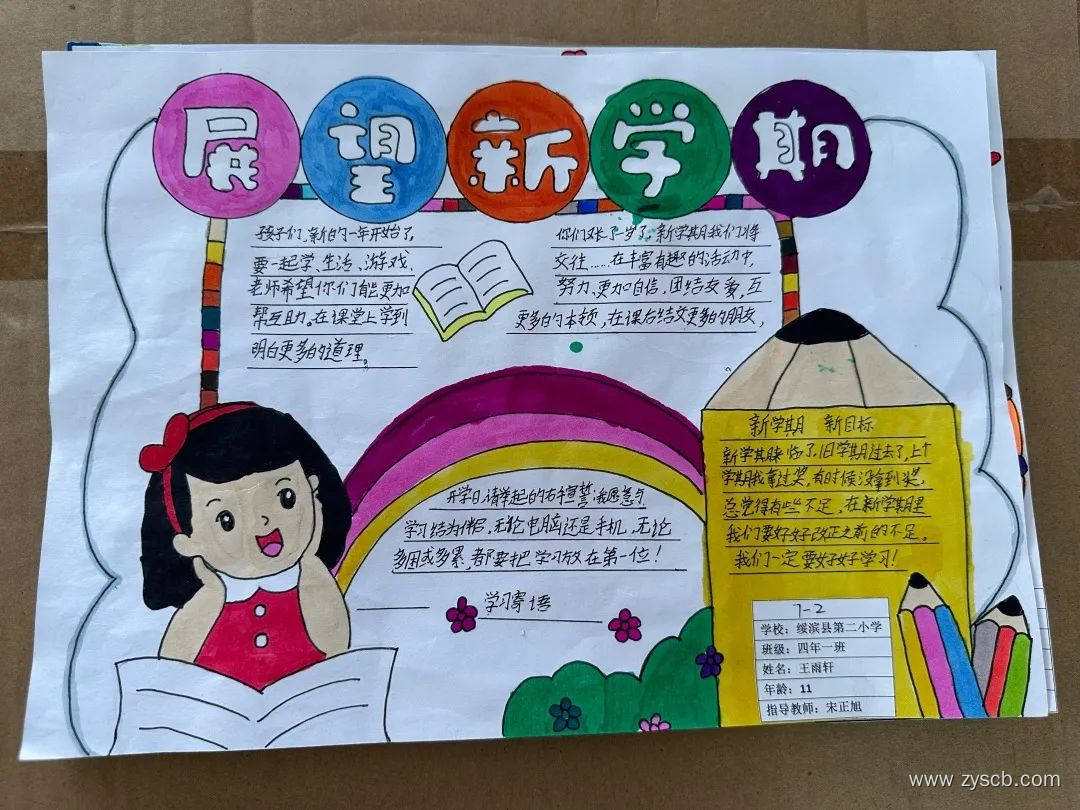 展望新学期
孩子们,新的一年开始了,
要一起学、生活、游戏、
老师希望你们能更加
帮互助。在课堂上学到
明白更多的道理。
你们又长了一岁了,新学期我们将
交往……在丰富有趣的活动中,
努力、更加自信、团结友爱,互
更多的本领,在课后结交更多的朋友,
新学期 新目标
新学期来临了,旧学期过去了,上个
学期我拿过奖,有时候没拿到奖,
总觉得有些不足,在新学期里
我们要好好改正之前的不足。
我们一定要好好学习!
开学日,请举起的右手宣誓:我愿意与
学习结为伴侣,无论电脑还是手机,无论
多困或多累,都要把学习放在第一位!
学习寄语
7-2
学校:绥滨县第二小学
班级:四年一班
姓名:王雨轩
年龄:11
指导教师:宋正旭
www.zyscb.com